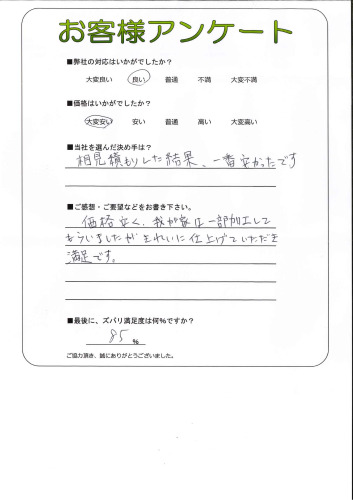 お客様アンケート
■弊社の対応はいかがでしたか？
大変良い 良い 普通 不満 大変不満
■価格はいかがでしたか？
大変安い 安い 普通 高い 大変高い
■当社を選んだ決め手は？
相見積もりした結果、一番安かったです
■ご感想・ご要望などをお書き下さい。
価格安く、我が家は一部加工して
もらいましたがきれいに仕上げていただき
満足です。
■最後に、ズバリ満足度は何%ですか？
85 %
ご協力頂き、誠にありがとうございました。